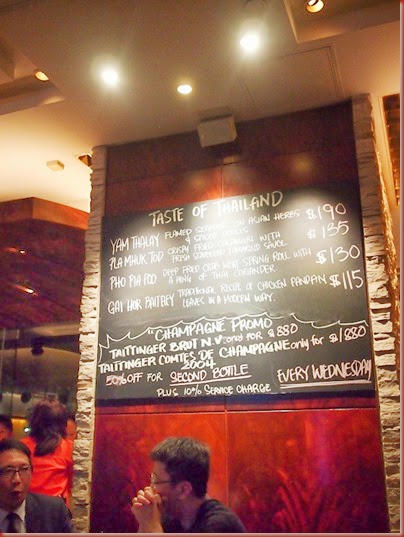 TASTE OF THAILAND
YAM THALAY FLAMED SEAFOOD ON ASIAN HERBS $190
& SPICY
PLA MHUK TOD CRISPY FRIED CALAMARI WITH $135
FRESH SEAWEED TAMARIND SAUCE
POH PIA POO DEEP FRIED CRAB MEAT SPRING ROLL WITH $130
A PING OF THAI CORIANDER
GAI HOR BAITOEY TRADITIONAL RECIPE OF CHICKEN PANDAN $115
LEAVES IN A MODERN WAY.
"CHAMPAGNE PROMO"
TAITTINGER BRUT N.V only for $880
TAITTINGER COMTES DE CHAMPAGNE only for $1880
2004
50% OFF FOR SECOND BOTTLE
PLUS 10% SERVICE CHARGE
EVERY WEDNESDAY